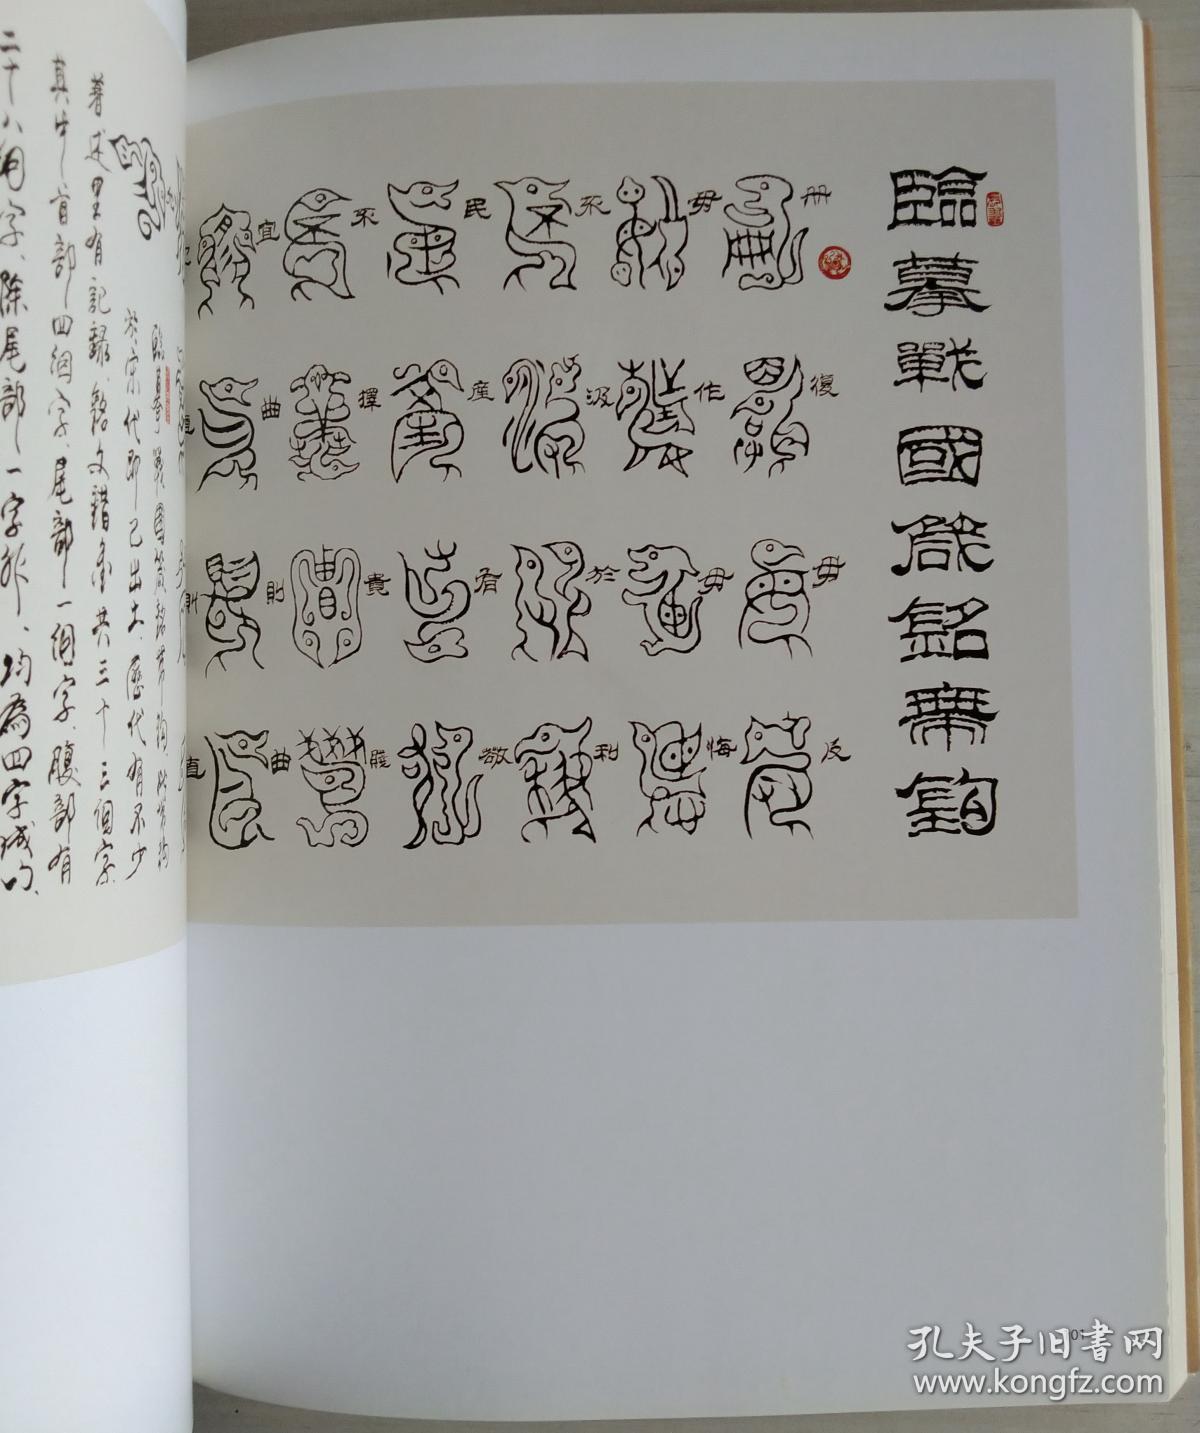 臨摹戰國箴銘帶鉤
册復毋反
毋作毋悔
不汲於利
民産有敬
不擇貴賤
宜曲則曲
直則直
臨摹戰國箴銘帶鉤此帶鉤
於宋代即已出土、歷代有不少
著述里有記錄、銘文錯金共三十三個字、
其中首部四個字、尾部一個字、腹部有
二十八個字、除尾部一字外、均為四字成句、
01
孔夫子旧書网
www.kongfz.com